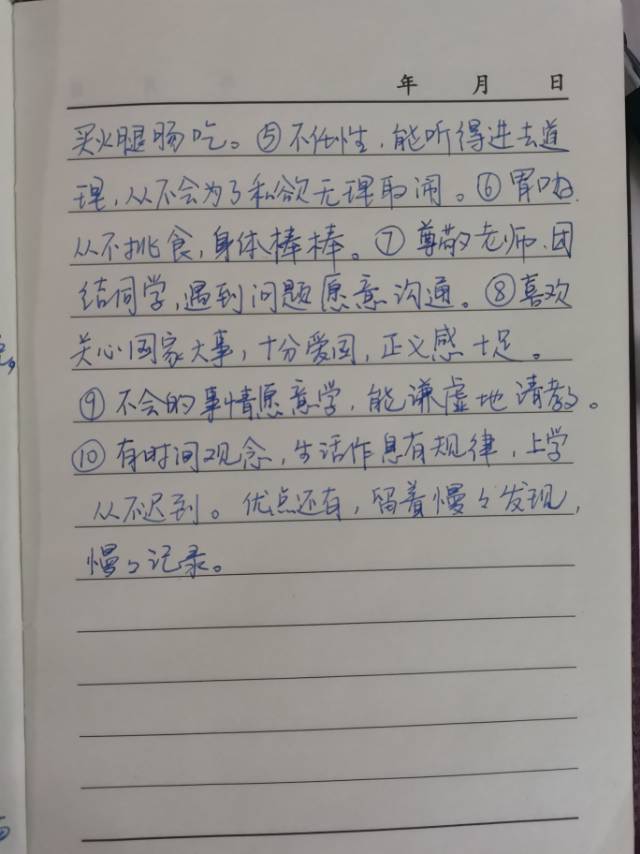 年 月 日
买火腿肠吃。⑤不任性，能听得进去道
理，从不会为了私欲无理取闹。⑥胃口好，
从不挑食，身体棒棒。⑦尊敬老师、团
结同学，遇到问题愿意沟通。⑧喜欢
关心国家大事，十分爱国，正义感十足。
⑨不会的事情愿意学，能谦虚地请教。
⑩有时间观念，生活作息有规律，上学
从不迟到。优点还有，留着慢々发现，
慢々记录。